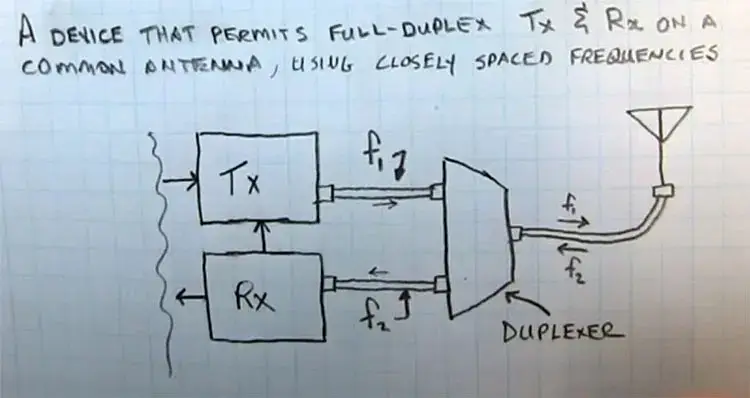 A DEVICE THAT PERMITS FULL-DUPLEX Tx & Rx ON A
COMMON ANTENNA, USING CLOSELY SPACED FREQUENCIES
Tx
f1
f1
Rx
f2
f2
DUPLEXER